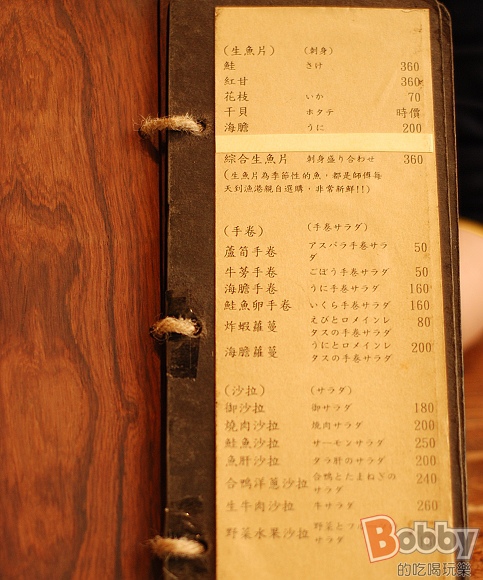 (生魚片) (刺身)
鮭 さけ 360
紅甘 360
花枝 いか 70
干貝 ホタテ 時價
海膽 うに 200
綜合生魚片 刺身盛り合わせ 360
(生魚片為季節性的魚，都是師傅每
天到漁港親自選購，非常新鮮!!)
(手卷) (手巻サラダ)
蘆筍手卷 アスパラ手巻サラダ 50
牛蒡手卷 ごぼう手巻サラダ 50
海膽手卷 うに手巻サラダ 160
鮭魚卵手卷 いくら手巻サラダ 160
炸蝦蘿蔓 えびとロメインレタスの手巻サラダ 80
海膽蘿蔓 うにとロメインレタスの手巻サラダ 200
(沙拉) (サラダ)
御沙拉 御サラダ 180
燒肉沙拉 焼肉サラダ 200
鮭魚沙拉 サーモンサラダ 250
魚肝沙拉 タラ肝のサラダ 200
合鴨洋蔥沙拉 合鴨とたまねぎのサラダ 240
生牛肉沙拉 牛サラダ 260
野菜水果沙拉 野菜とフル サラダ
Bobby
的吃喝玩樂